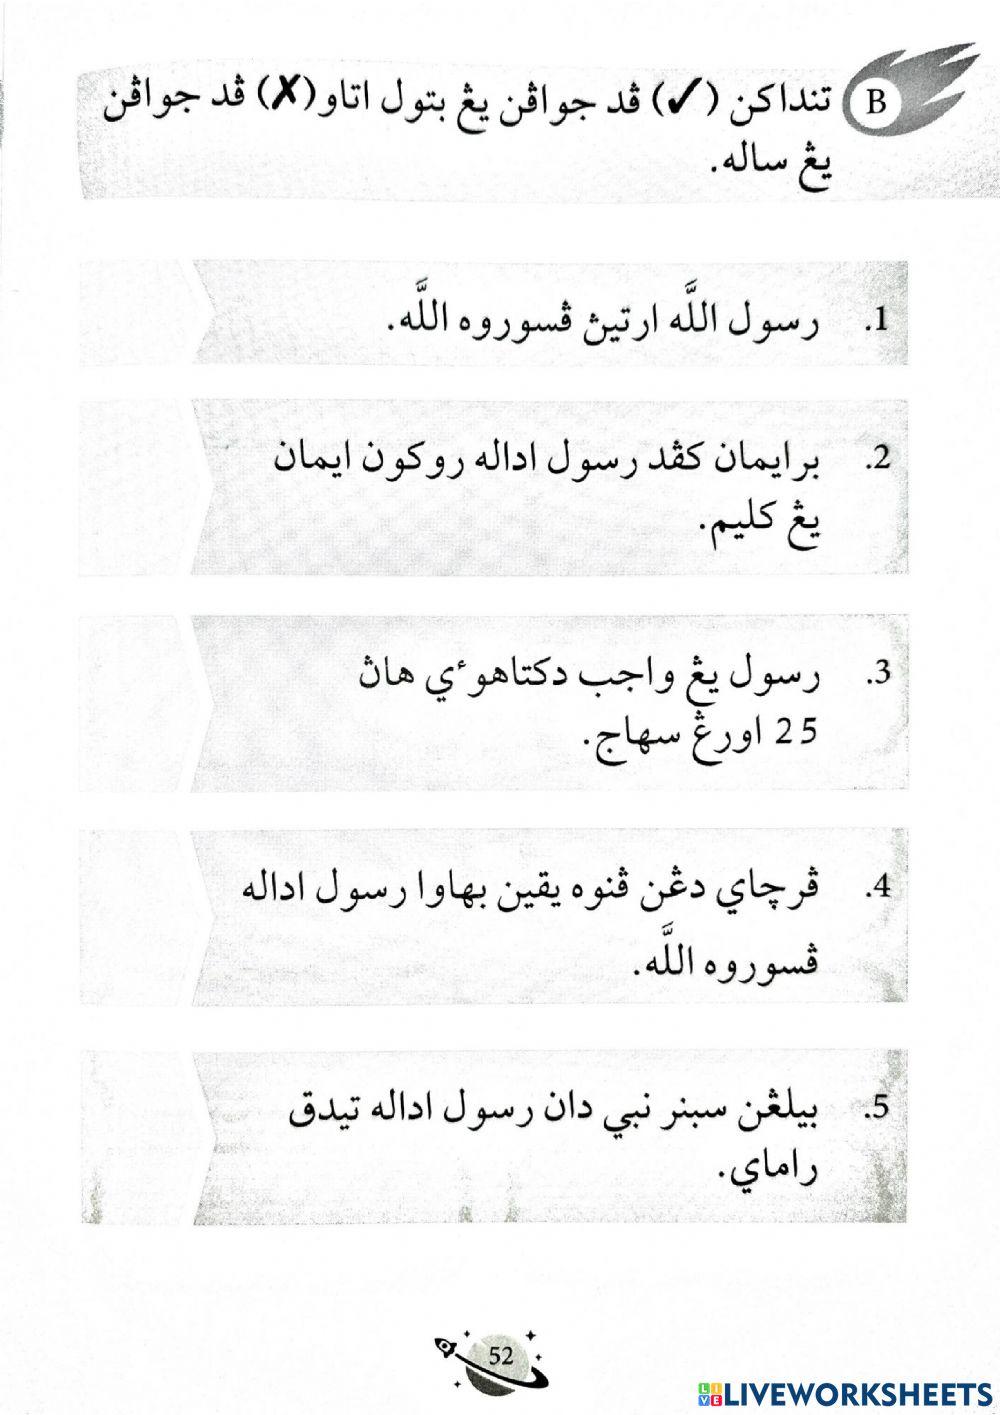 B تنداكن (✓) ڤد جواڤن يڠ بتول اتاو (✗) ڤد جواڤن
يڠ ساله.
1. رسول اللَّه ارتيڽ ڤسوروه اللَّه.
2. برايمان كڤد رسول اداله روكون ايمان
يڠ كليم.
3. رسول يڠ واجب دكتاهوءي هاڽ
25 اورڠ سهاج.
4. ڤرچاي دڠن ڤنوه يقين بهاوا رسول اداله
ڤسوروه اللَّه.
5. بيلڠن سبنر نبي دان رسول اداله تيدق
راماي.
52
LIVEWORKSHEETS